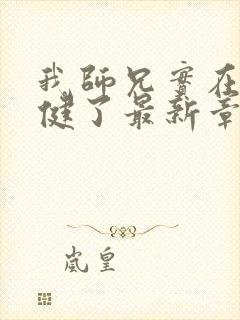 我師兄實在
健了最新章
嵐皇